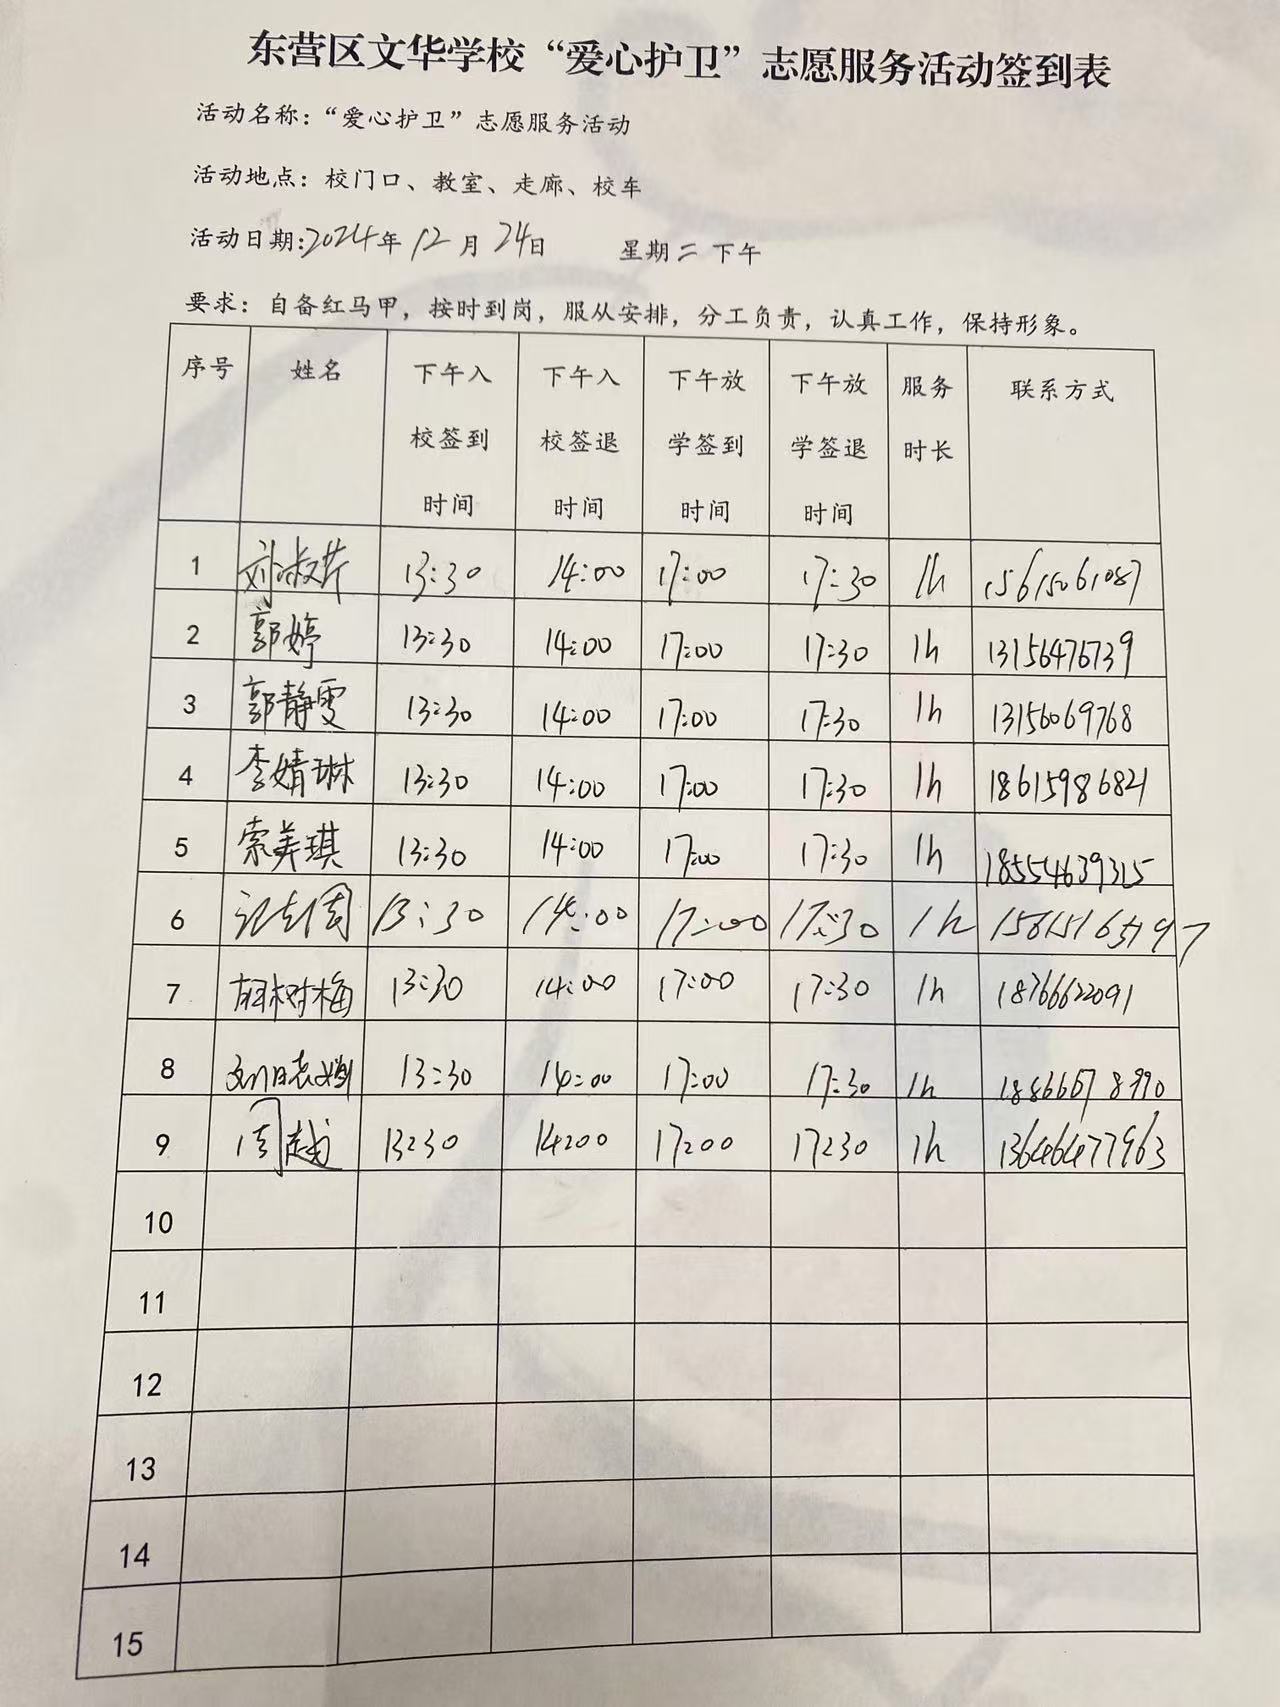 东营区文华学校“爱心护卫”志愿服务活动签到表
活动名称：“爱心护卫”志愿服务活动
活动地点：校门口、教室、走廊、校车
活动日期:2024年 12月 24日 星期二 下午
要求：自备红马甲，按时到岗，服从安排，分工负责，认真工作，保持形象。
序号 姓名 下午入校签到时间 下午入校签退时间 下午放学签到时间 下午放学签退时间 服务时长 联系方式
1 刘淑芹 13:30 14:00 17:00 17:30 1h 15615061087
2 郭婷 13:30 14:00 17:00 17:30 1h 13156476739
3 郭静雯 13:30 14:00 17:00 17:30 1h 13156069768
4 李婧琳 13:30 14:00 17:00 17:30 1h 18615986821
5 索美琪 13:30 14:00 17:00 17:30 1h 18554639325
6 13:30 14:00 17:00 17:30 1h
7 胡树梅 13:30 14:00 17:00 17:30 1h 18766622091
8 13:30 14:00 17:00 17:30 1h
9 周越 13:30 14:00 17:00 17:30 1h 13646477963
10
11
12
13
14
15